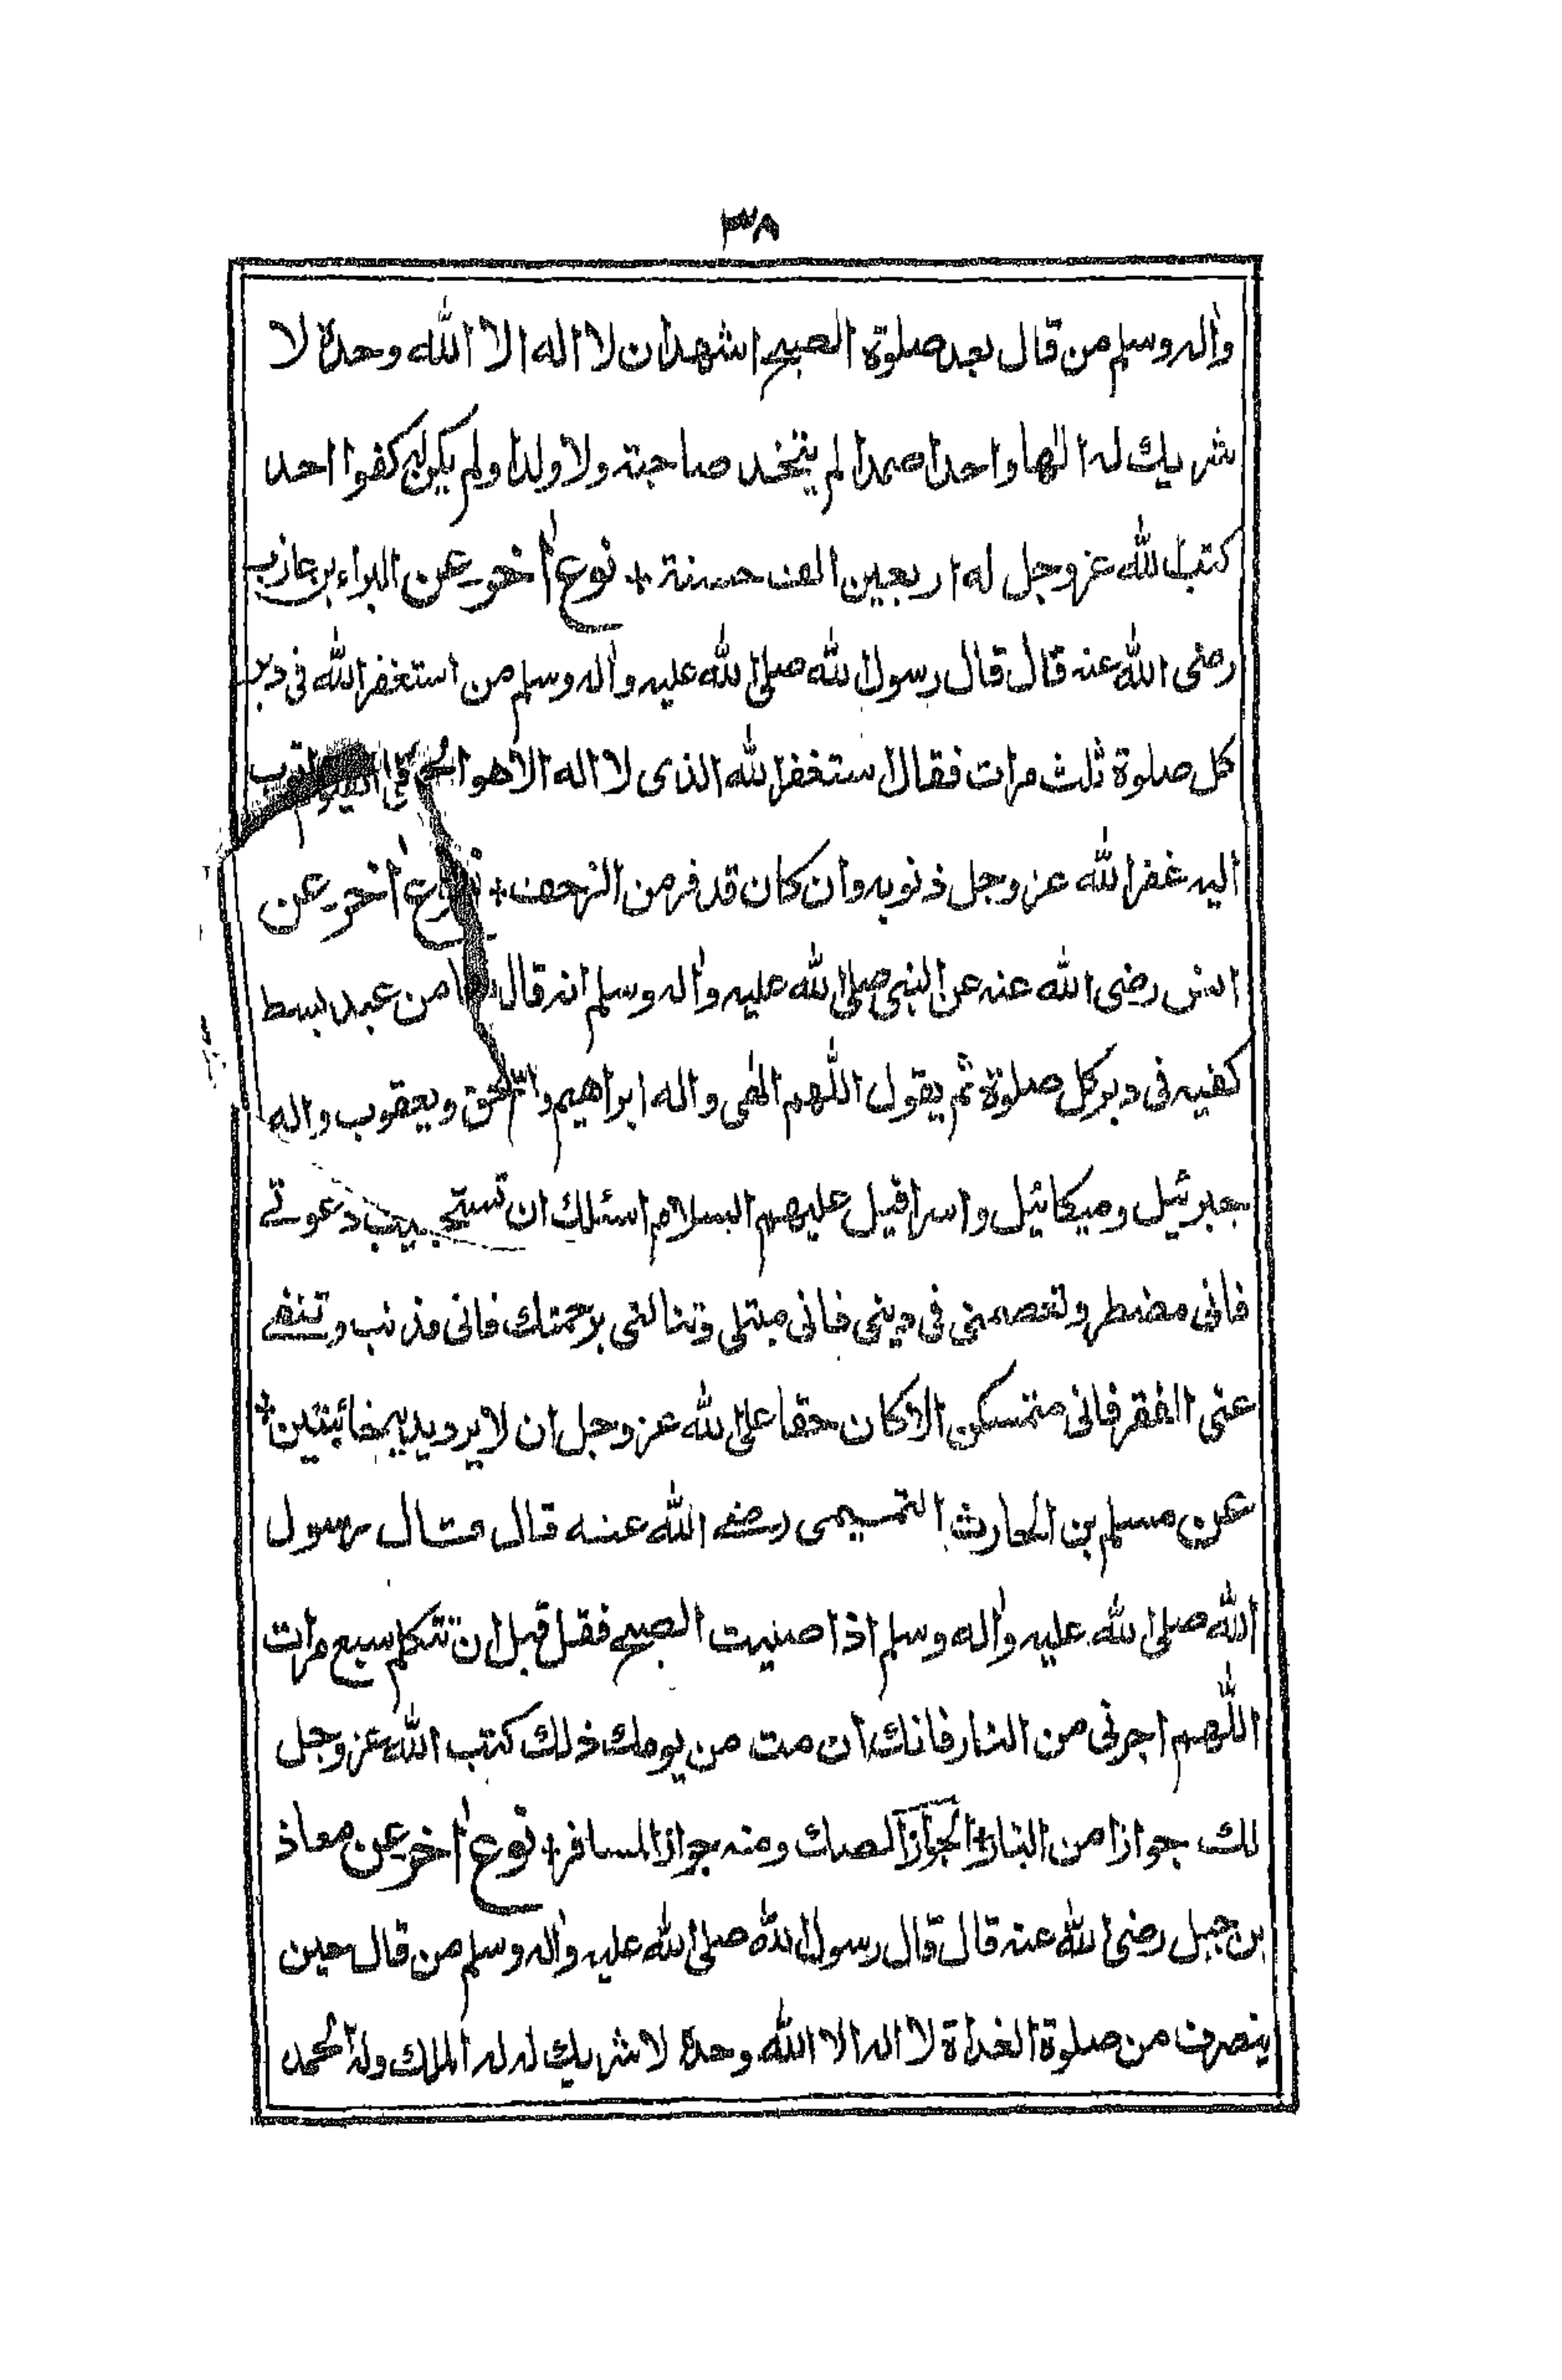 ٣٨
واٰله وسلم من قال بعد صلوة الصبح اشهد ان لا اله الا الله وحده لا
شريك له الها واحدا صمدا لم يتخذ صاحبته ولا ولدا ولم يكن له كفوا احد
كتب الله عز وجل له اربعين الف حسنة + نوع اٰخر عن البراء بن عازب
رضى الله عنه قال قال رسول الله صلى الله عليه واٰله وسلم من استغفر الله فى دبر
كل صلوة ثلث مرات فقال استغفر الله الذى لا اله الا هو الحى القيوم اتوب
اليه غفر الله عز وجل ذنوبه وان كان قد فر من الزحف + نوع اٰخر عن
انس رضى الله عنه عن النبى صلى الله عليه واٰله وسلم انه قال ما من عبد بسط
كفيه فى دبر كل صلوة ثم يقول اللهم الٰهى واله ابراهيم واسحٰق ويعقوب واله
جبرئيل وميكائيل واسرافيل عليهم السلام اسئلك ان تستجيب دعوتے
فانى مضطر وتعصمنى فى دينى فانى مبتلى وتنالنى برحمتك فانى مذنب وتنفے
عنى الفقر فانى متمسكن الا كان حقا على الله عز وجل ان لا يرد يديه خائبتين +
عن مسلم بن الحارث التميمى رضے الله عنه قال قال رسول
الله صلى الله عليه واٰله وسلم اذا صليت الصبح فقل قبل ان تتكلم سبع مرات
اللهم اجرنى من النار فانك ان مت من يومك ذلك كتب الله عز وجل
لك جوازا من النار + الجواز الصك ومنه جواز المسافر + نوع اٰخر عن معاذ
بن جبل رضى الله عنه قال قال رسول الله صلى الله عليه واٰله وسلم من قال حين
ينصرف من صلوة الغداة لا اله الا الله وحده لا شريك له له الملك وله الحمد